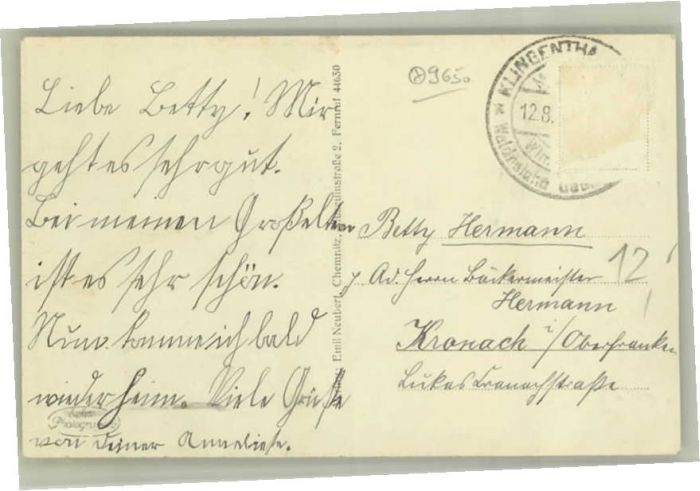 Liebe Betty! Mir
geht es sehr gut.
Bei meinen Großeltern
ist es sehr schön.
Nun komme ich bald
wieder heim. Viele Grüße
von Deiner Anneliese.
Emil Neubert, Chemnitz, 2, Fernruf 44650
9650
KLINGENTHA
12.8.
Betty Hermann
Ad. Herrn Bäckermeister
Hermann
Kronach i/Oberfranken
Lukas Cranachstraße
12